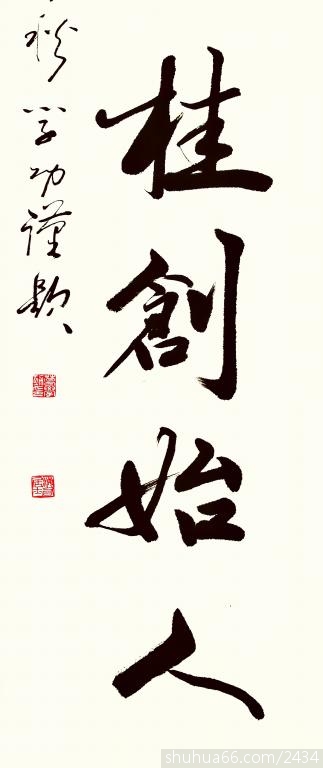 桂創始人
學功謹題
shuhua66.com/2434